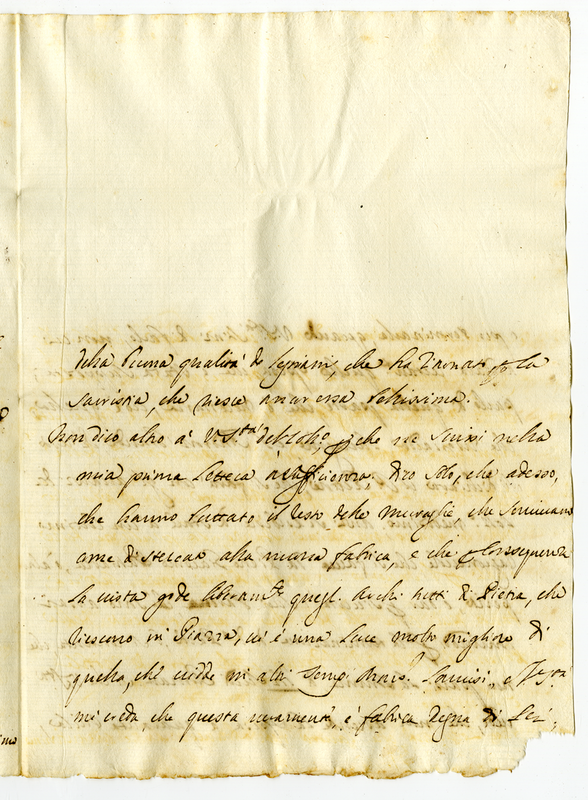 della buona qualità de legnami, che ha trovato p la
Sacristia, che riesce ancor essa bellissima.
Non dico altro à V. S.tà p che ne scrissi nella
mia prima lettera à sufficienza; dirò solo, che adesso,
che hanno buttato il resto delle muraglie, che servivano
come di steccato alla nuova fabrica, e che p conseguenza
la vista gode liberam.te quegl. Archi tutti di Pietra, che
riescono in Piazza, vi è una luce molto migliore di
quella, che vedde ni altri tempi e V. S.tà
mi creda, che questa veramente è fabrica degna di Lei,